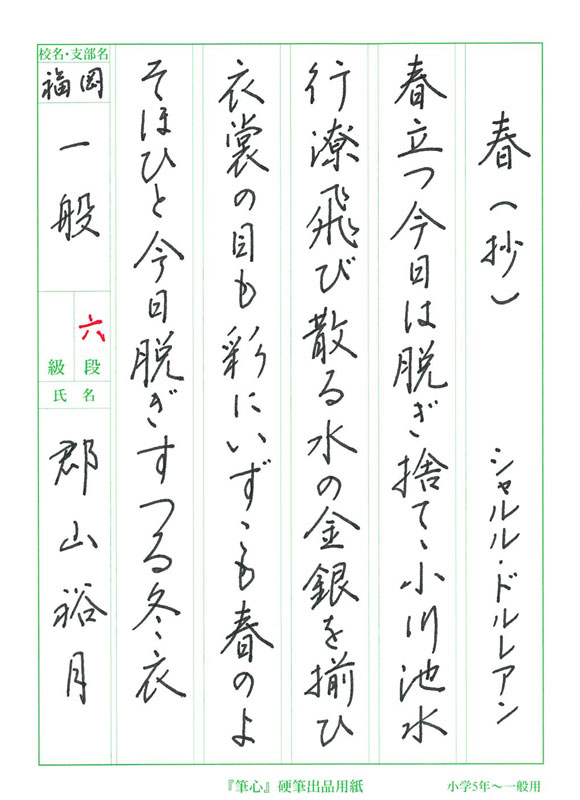 春(抄) シャルル・ドルレアン
春立つ今日は脱ぎ捨てゝ小川池水
行潦飛び散る水の金銀を揃ひ
衣裳の目も彩にいずこも春のよ
そほひと今日脱ぎすつる冬衣
校名・支部名
福岡
一般
六
級 段
氏 名
郡山裕月
『筆心』硬筆出品用紙
小学5年〜一般用